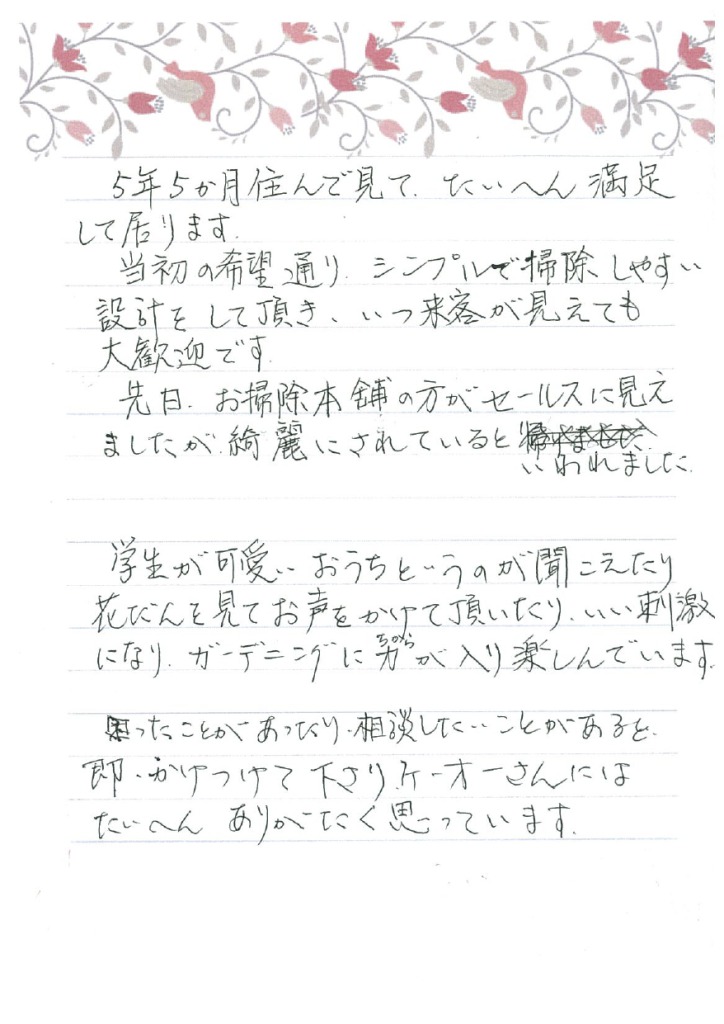 5年5か月住んで見て、たいへん満足
して居ります。
当初の希望通り、シンプルで掃除しやすい
設計をして頂き、いつ来客が見えても
大歓迎です。
先日、お掃除本舗の方がセールスに見え
ましたが、綺麗にされていると
いわれました。
学生が可愛いおうちというのが聞こえたり
花だんを見てお声をかけて頂いたり、いい刺激
になり、ガーデニングに力が入り楽しんでいます。
ちから
困ったことがあったり、相談したいことがあると、
即、かけつけて下さり、ケーオーさんには
たいへんありがたく思っています。